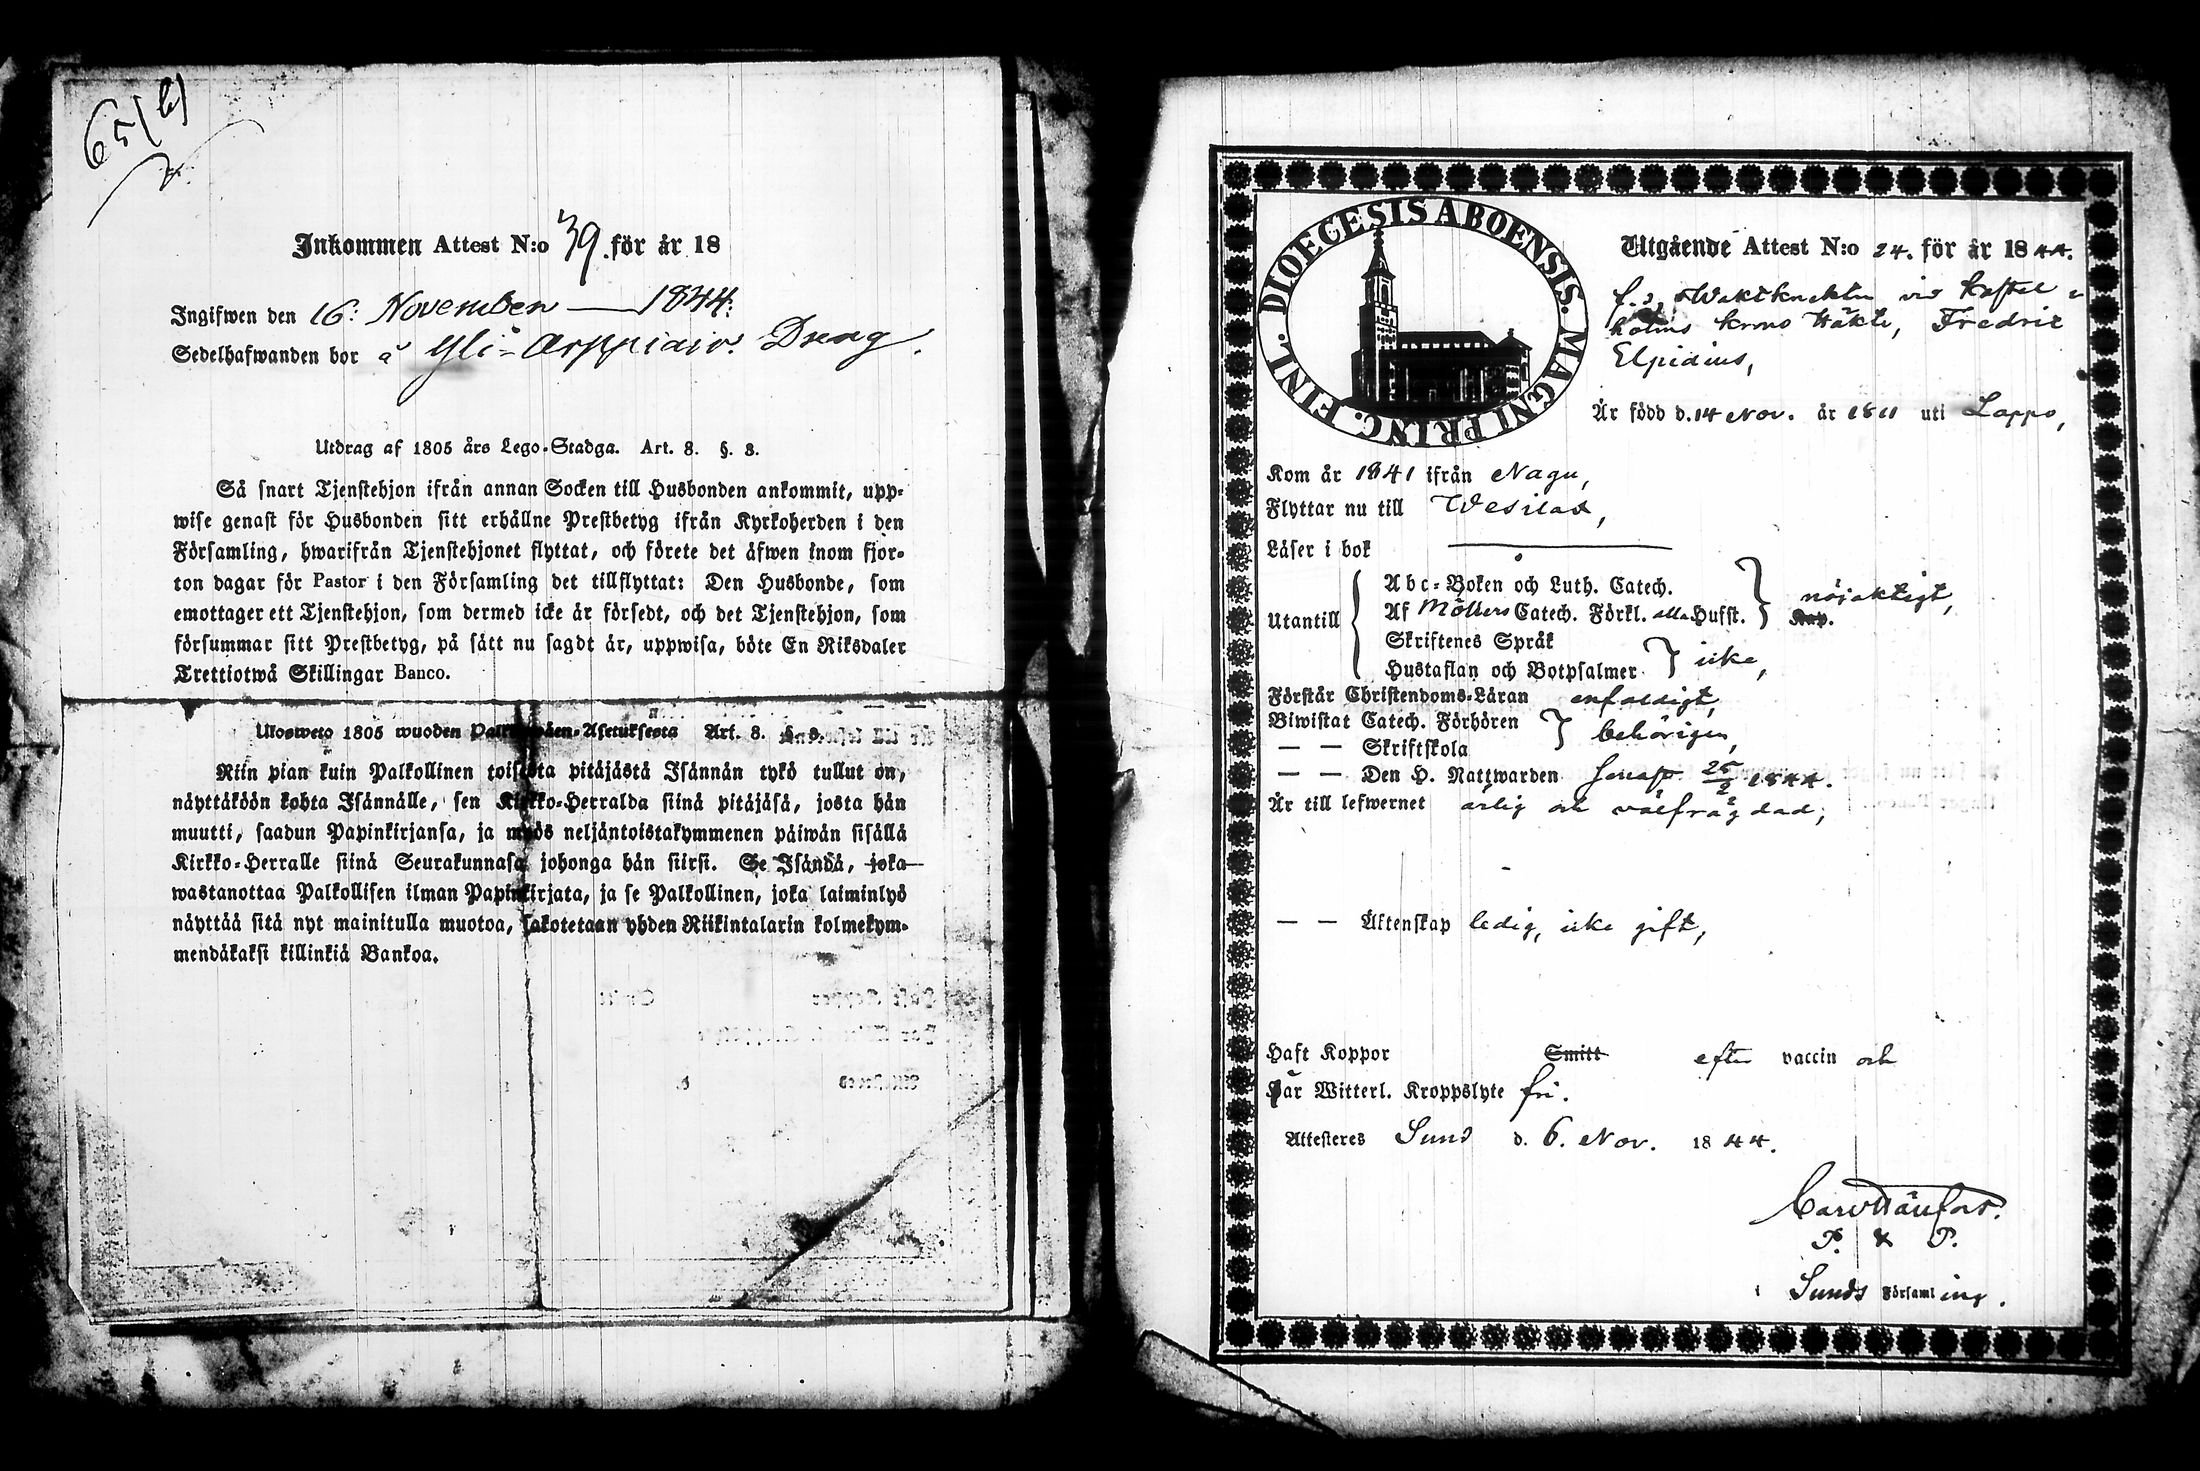 65(b)
Inkommen Attest N:o 39. för år 18
Ingifwen den 16: November — 1844.
Sedelhafwanden bor å Yli-Arppiain. Dreng.
Utdrag af 1805 års Lego-Stadga. Art. 8. §. 8.
Så snart Tjenstehjon ifrån annan Socken till Husbonden ankommit, upp-
wise genast för Husbonden sitt erhållne Prestbetyg ifrån Kyrkoherden i den
Församling, hwarifrån Tjenstehjonet flyttat, och förete det äfwen inom fjor-
ton dagar för Pastor i den Församling det tillflyttat: Den Husbonde, som
emottager ett Tjenstehjon, som dermed icke är försedt, och det Tjenstehjon, som
försummar sitt Prestbetyg, på sätt nu sagdt är, uppwisa, böte En Riksdaler
Trettiotwå Skillingar Banco.
Ulosweto 1805 wuoden Palkowäen-Asetuksesta Art. 8. §. 8.
Niin pian kuin Palkollinen toisesta pitäjästä Isännän tykö tullut on,
näyttäköön kohta Isännälle, sen Kirkko-Herralda siinä pitäjäsä, josta hän
muutti, saadun Papinkirjansa, ja myös neljäntoistakymmenen päiwän sisällä
Kirkko-Herralle siinä Seurakunnasa johonga hän siirsi. Se Isändä, joka
wastanottaa Palkollisen ilman Papinkirjata, ja se Palkollinen, joka laiminlyö
näyttää sitä nyt mainitulla muotoa, sakotetaan yhden Riikintalarin kolmekym-
mendäkaksi killinkiä Bankoa.
DIOECESIS ABOENSIS. MAGNI PRINC. FINL.
Utgående Attest N:o 24. för år 1844.
f. d. Waktknekten vid Kastel-
holms krono häkte, Fredric
Elpidius,
Är född d. 14 Nov. år 1811 uti Lappo,
Kom år 1841 ifrån Nagu,
Flyttar nu till Wesilax,
Läser i bok
Utantill
Abc-Boken och Luth. Catech.
Af Möllers Catech. Förkl. alla Hufst. nöjaktigt, Kap.
Skriftenes Språk
Hustaflan och Botpsalmer icke,
Förstår Christendoms-Läran enfaldigt,
Biwistat Catech. Förhören
— — Skriftskola behörigen,
— — Den H. Nattwarden senast 25/8 1844.
Är till lefwernet ärlig och välfrägdad;
— — Äktenskap ledig, icke gift,
Haft Koppor Smitt efter vaccin och
Här Witterl. Kroppslyte fri.
Attesteres Sund d. 6. Nov. 1844.
P. & P.
i Sunds Församling.